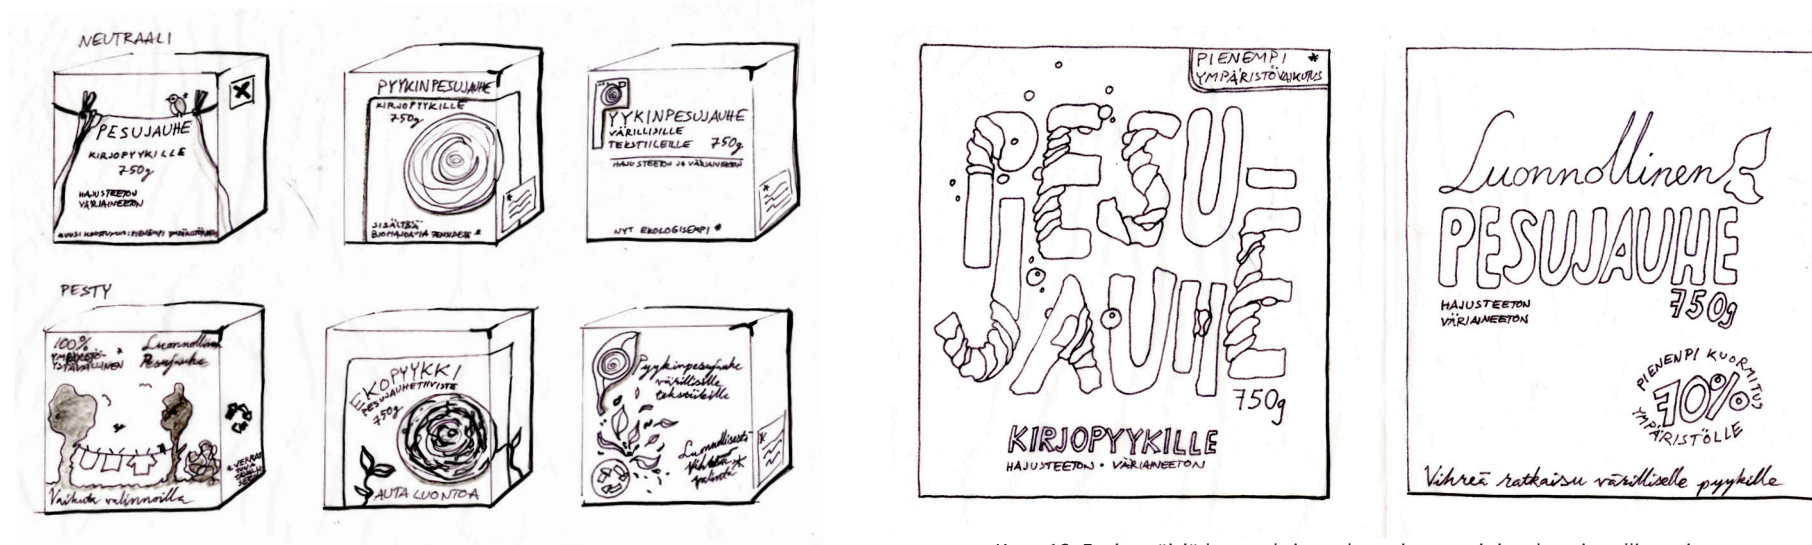 NEUTRAALI
PESUJAUHE
KIRJOPYYKILLE
750g
HAJUSTEETON
VÄRIAINEETON
PYYKINPESUJAUHE
KIRJOPYYKILLE
750g
SISÄLTÄÄ
BIOHAJOAVIA TENSIDEJÄ *
PYYKINPESUJAUHE
VÄRILLISILLE
TEKSTIILEILLE 750g
HAJUSTEETON JA VÄRIAINEETON
NYT EKOLOGISEMPI *
PESTY
100%
YMPÄRISTÖ-
YSTÄVÄLLINEN *
Luonnollinen
Pesujauhe
Vaikuta valinnoilla
EKOPYYKKI
PESUJAUHETIIVISTE
750g
AUTA LUONTOA
Pyykinpesujauhe
värillisille
tekstiileille
Luonnollisesti
Vihreä *
valinta
PIENEMPI *
YMPÄRISTÖVAIKUTUS
PESU-
JAUHE
750g
KIRJOPYYKILLE
HAJUSTEETON • VÄRIAINEETON
Luonnollinen
PESUJAUHE
750g
HAJUSTEETON
VÄRIAINEETON
PIENENPI KUORMITUS
70%
YMPÄRISTÖLLE
Vihreä ratkaisu värilliselle pyykille